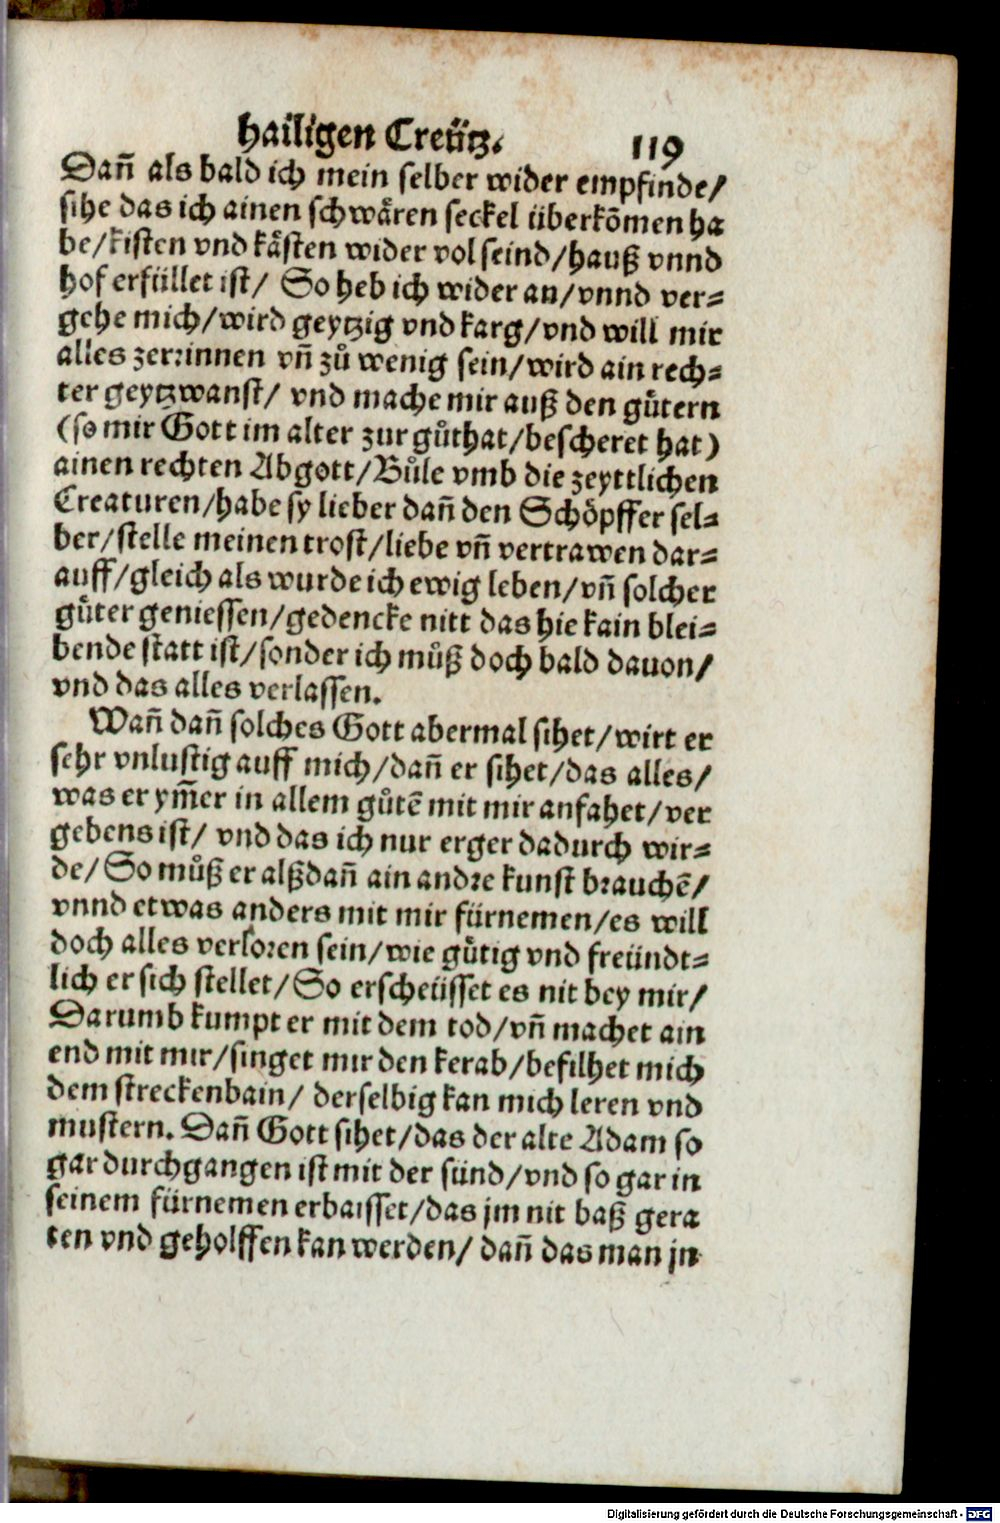 hailigen Creütz. 119
Dañ als bald ich mein selber wider empfinde/
sihe das ich ainen schwären seckel überkōmen ha
be/kisten vnd kästen wider vol seind/hauß vnnd
hof erfüllet ist/ So heb ich wider an/vnnd ver-
gehe mich/wird geytzig vnd karg/vnd will mir
alles zerrinnen vñ zů wenig sein/wird ain rech-
ter geytzwanst/ vnd mache mir auß den gůtern
(so mir Gott im alter zur gůthat/bescheret hat)
ainen rechten Abgott/Bůle vmb die zeyttlichen
Creaturen/habe sy lieber dañ den Schöpffer sel-
ber/stelle meinen trost/liebe vñ vertrawen dar-
auff/gleich als wurde ich ewig leben/vñ solcher
gůter geniessen/gedencke nitt das hie kain blei-
bende statt ist/sonder ich můß doch bald dauon/
vnd das alles verlassen.
Wañ dañ solches Gott abermal sihet/wirt er
sehr vnlustig auff mich/dañ er sihet/das alles/
was er ym̃er in allem gůtē mit mir anfahet/ver
gebens ist/ vnd das ich nur erger dadurch wir-
de/So můß er alßdañ ain andre kunst brauchē/
vnnd etwas anders mit mir fürnemen/es will
doch alles verloren sein/wie gůtig vnd freündt-
lich er sich stellet/So erscheüsset es nit bey mir/
Darumb kumpt er mit dem tod/vñ machet ain
end mit mir/singet mir den kerab/befilhet mich
dem streckenbain/ derselbig kan mich leren vnd
mustern. Dañ Gott sihet/das der alte Adam so
gar durchgangen ist mit der sünd/vnd so gar in
seinem fürnemen erbaisset/das jm nit baß gera
ten vnd geholffen kan werden/ dañ das man jn
Digitalisierung gefördert durch die Deutsche Forschungsgemeinschaft - DFG